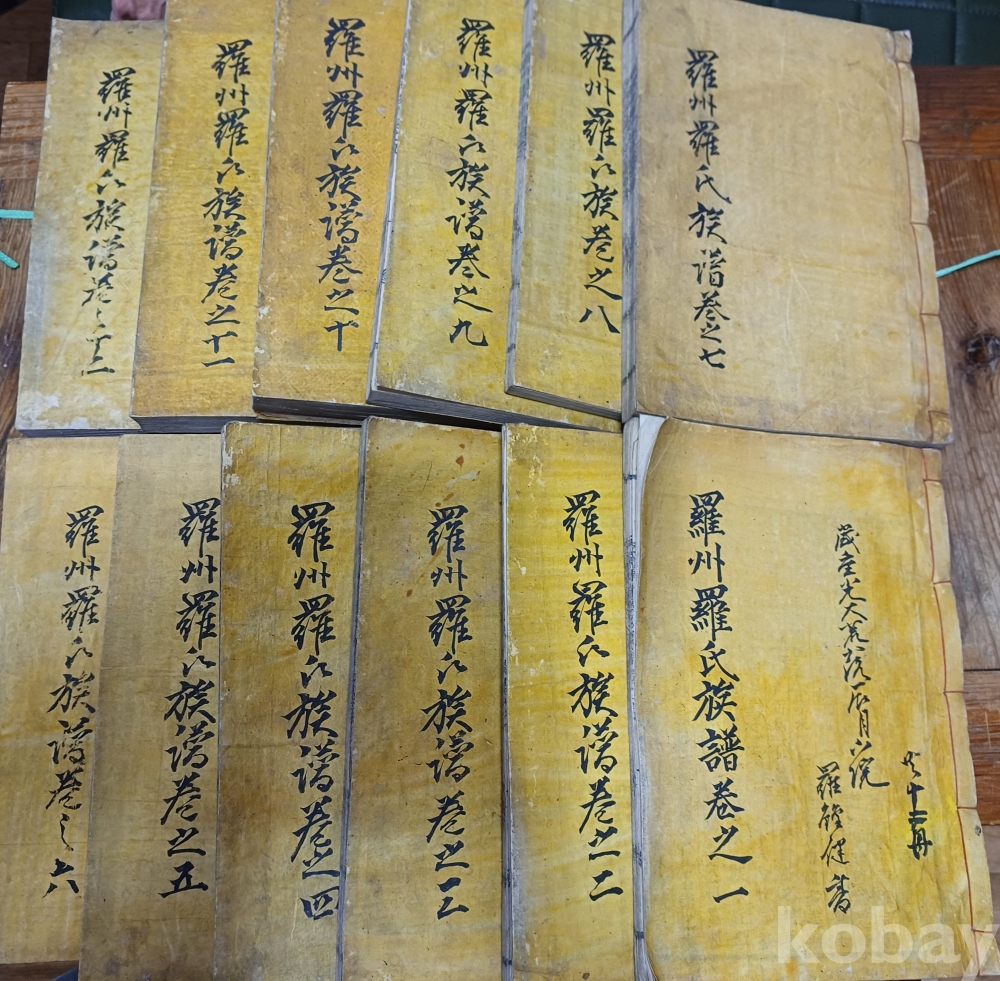 羅州羅氏族譜卷之七
羅州羅氏族卷之八
羅州羅氏族譜卷之九
羅州羅氏族譜卷之十
羅州羅氏族譜卷之十一
羅州羅氏族譜卷之十二
共十二冊
歲重光大荒落辰月浣
羅健書
羅州羅氏族譜卷之一
羅州羅氏族譜卷之二
羅州羅氏族譜卷之三
羅州羅氏族譜卷之四
羅州羅氏族譜卷之五
羅州羅氏族譜卷之六
kobay